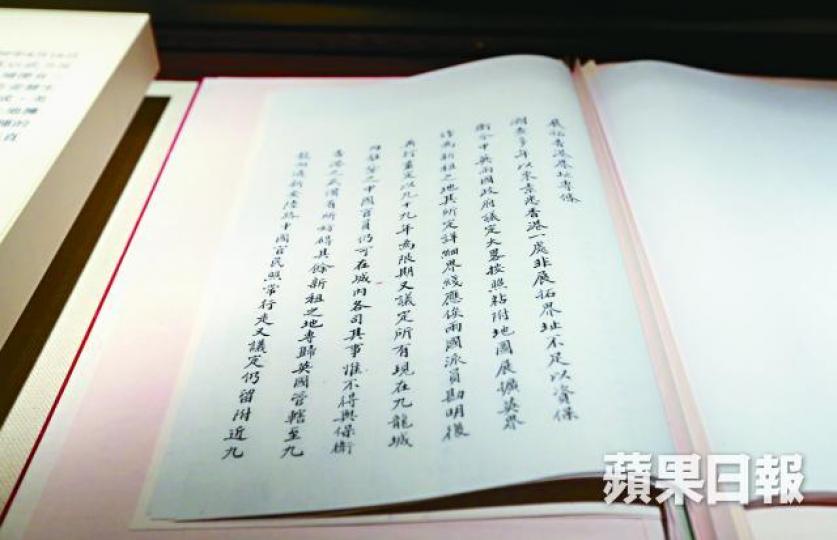 展拓香港界址專條
溯查多年以來素悉香港一處非展拓界址不足以資保
衛今中英兩國政府議定大畧按照粘附地圖展擴英界
作為新租之地其所定詳細界綫應俟兩國派員勘明後
再行畫定以九十九年為限期又議定所有現在九龍城
內駐劄之中國官員仍可在城內各司其事惟不得與保衛
香港之武備有所妨礙其餘新租之地專歸英國管轄至九
龍向通新安陸路中國官民照常行走又議定仍留附近九
蘋果日報